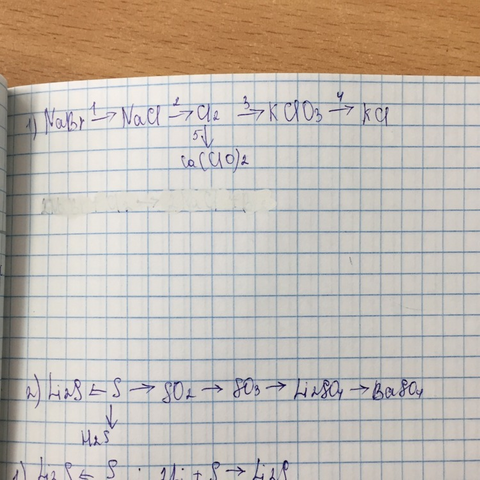 1) NaBr 1→ NaCl 2→ Cl2 3→ KClO3 4→ KCl
5↓
Ca(ClO)2
2) Li2S ← S → SO2 → SO3 → Li2SO4 → BaSO4
↓
H2S
1) Li2S ← S : 2Li + S → Li2S